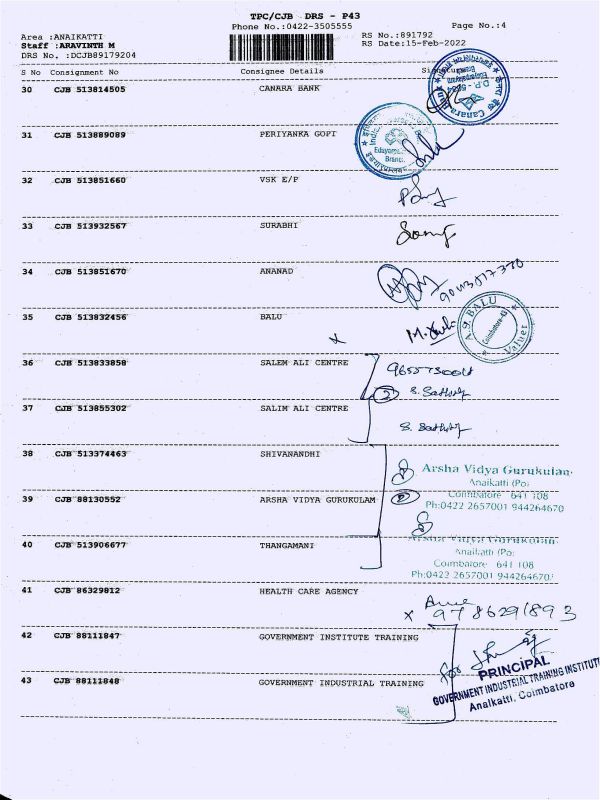 TPC/CJB DRS - P43
Phone No.:0422-3505555
Page No.:4
Area :ANAIKATTI
Staff :ARAVINTH M
DRS No. :DCJB89179204
RS No.:891792
RS Date:15-Feb-2022
S No Consignment No Consignee Details Signature
30 CJB 513814505 CANARA BANK
31 CJB 513889089 PERIYANKA GOPI
32 CJB 513851660 VSK E/P
33 CJB 513932567 SURABHI
34 CJB 513851670 ANANAD
35 CJB 513832456 BALU
A.G. BALU
Coimbatore-43
Valuer
36 CJB 513833858 SALEM ALI CENTRE
37 CJB 513855302 SALIM ALI CENTRE
38 CJB 513374463 SHIVANANDHI
Arsha Vidya Gurukulam
Anaikatti (Po)
39 CJB 88130552 ARSHA VIDYA GURUKULAM
Coimbatore 641 108
Ph:0422 2657001 944264670
40 CJB 513906677 THANGAMANI
Arsha Vidya Gurukulam
Anaikatti (Po)
Coimbatore 641 108
Ph:0422 2657001 944264670
41 CJB 86329812 HEALTH CARE AGENCY
x 9786291893
42 CJB 88111847 GOVERNMENT INSTITUTE TRAINING
for
PRINCIPAL
43 CJB 88111848 GOVERNMENT INDUSTRIAL TRAINING
GOVERNMENT INDUSTRIAL TRAINING INSTITUTE
Anaikatti, Coimbatore